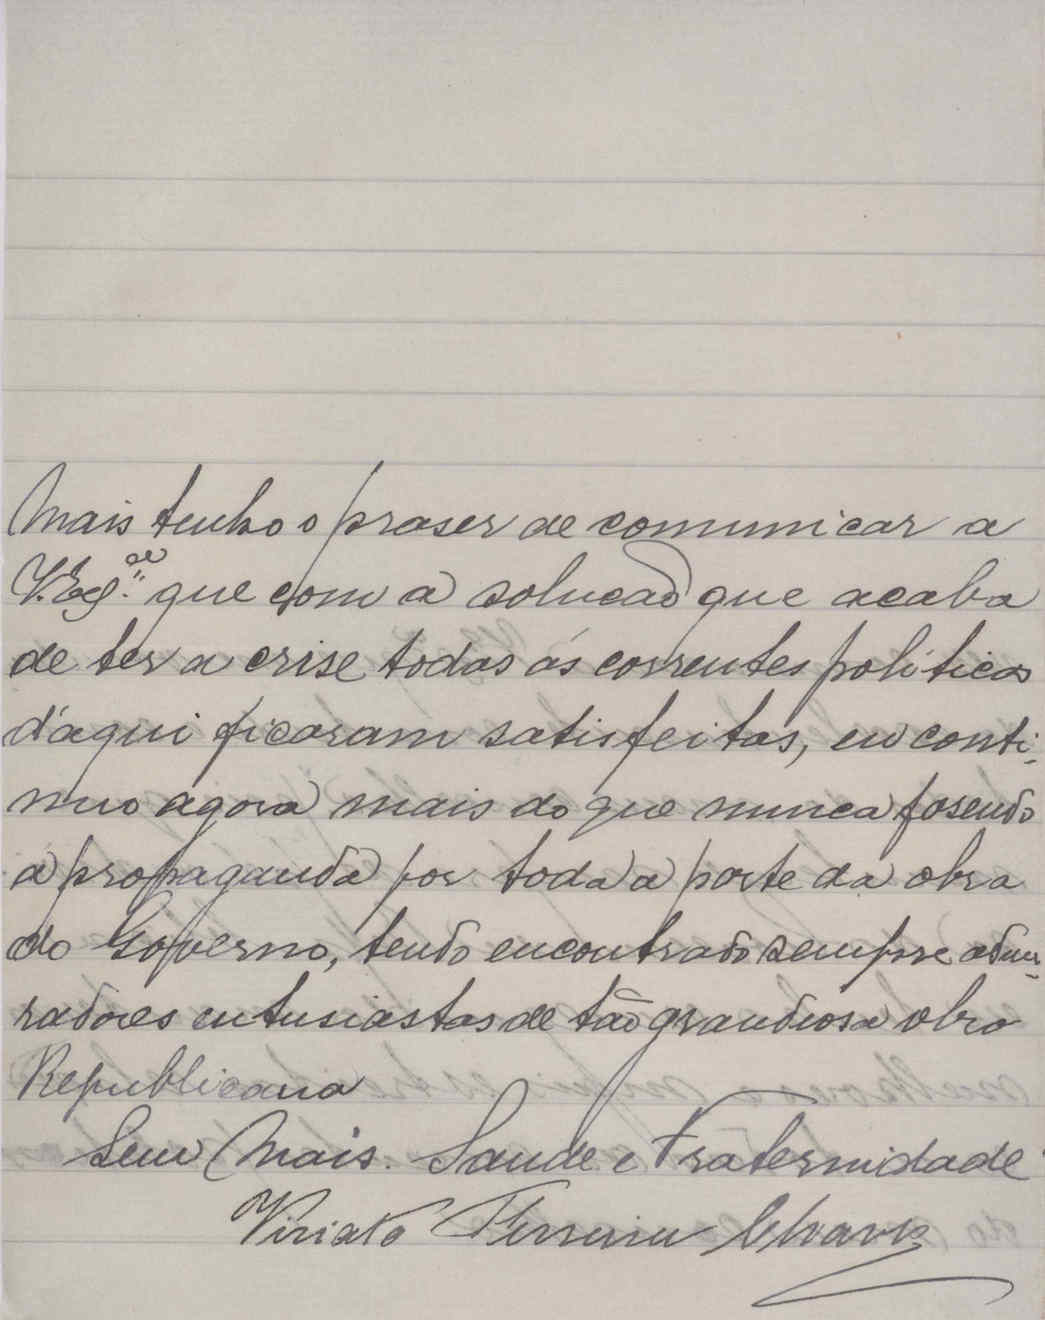 Mais tenho o praser de comunicar a
V. Exª que com a solucaõ que acaba
de ter a crise todas ás correntes politicas
d'aqui ficaram satisfeitas, eu conti-
nuo agora mais do que nunca fasendo
a propaganda por toda a parte da obra
do Governo, tendo encontrado sempre admi-
radores entusiastas de tão grandiosa obra
Republicana
Sem Mais. Saude e Fraternidade
Viriato Ferreira Chaves